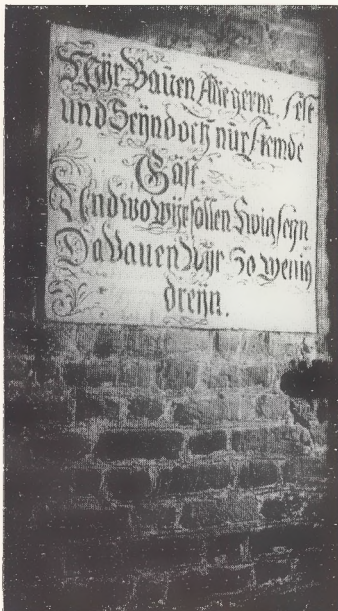 Wÿr Bauen Alle gerne fest
und Seÿn doch nür fremde
Gäst.
Und wo wÿr sollen Ewig seÿn
Da Bauen Wÿr So wenig
dreÿn.